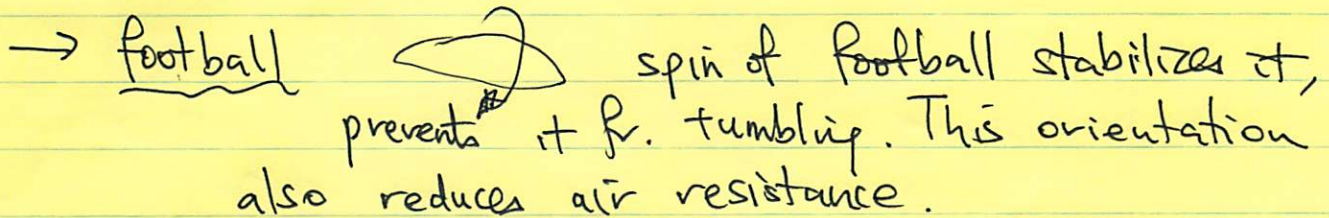 → football spin of football stabilizes it,
prevents it fr. tumbling. This orientation
also reduces air resistance.